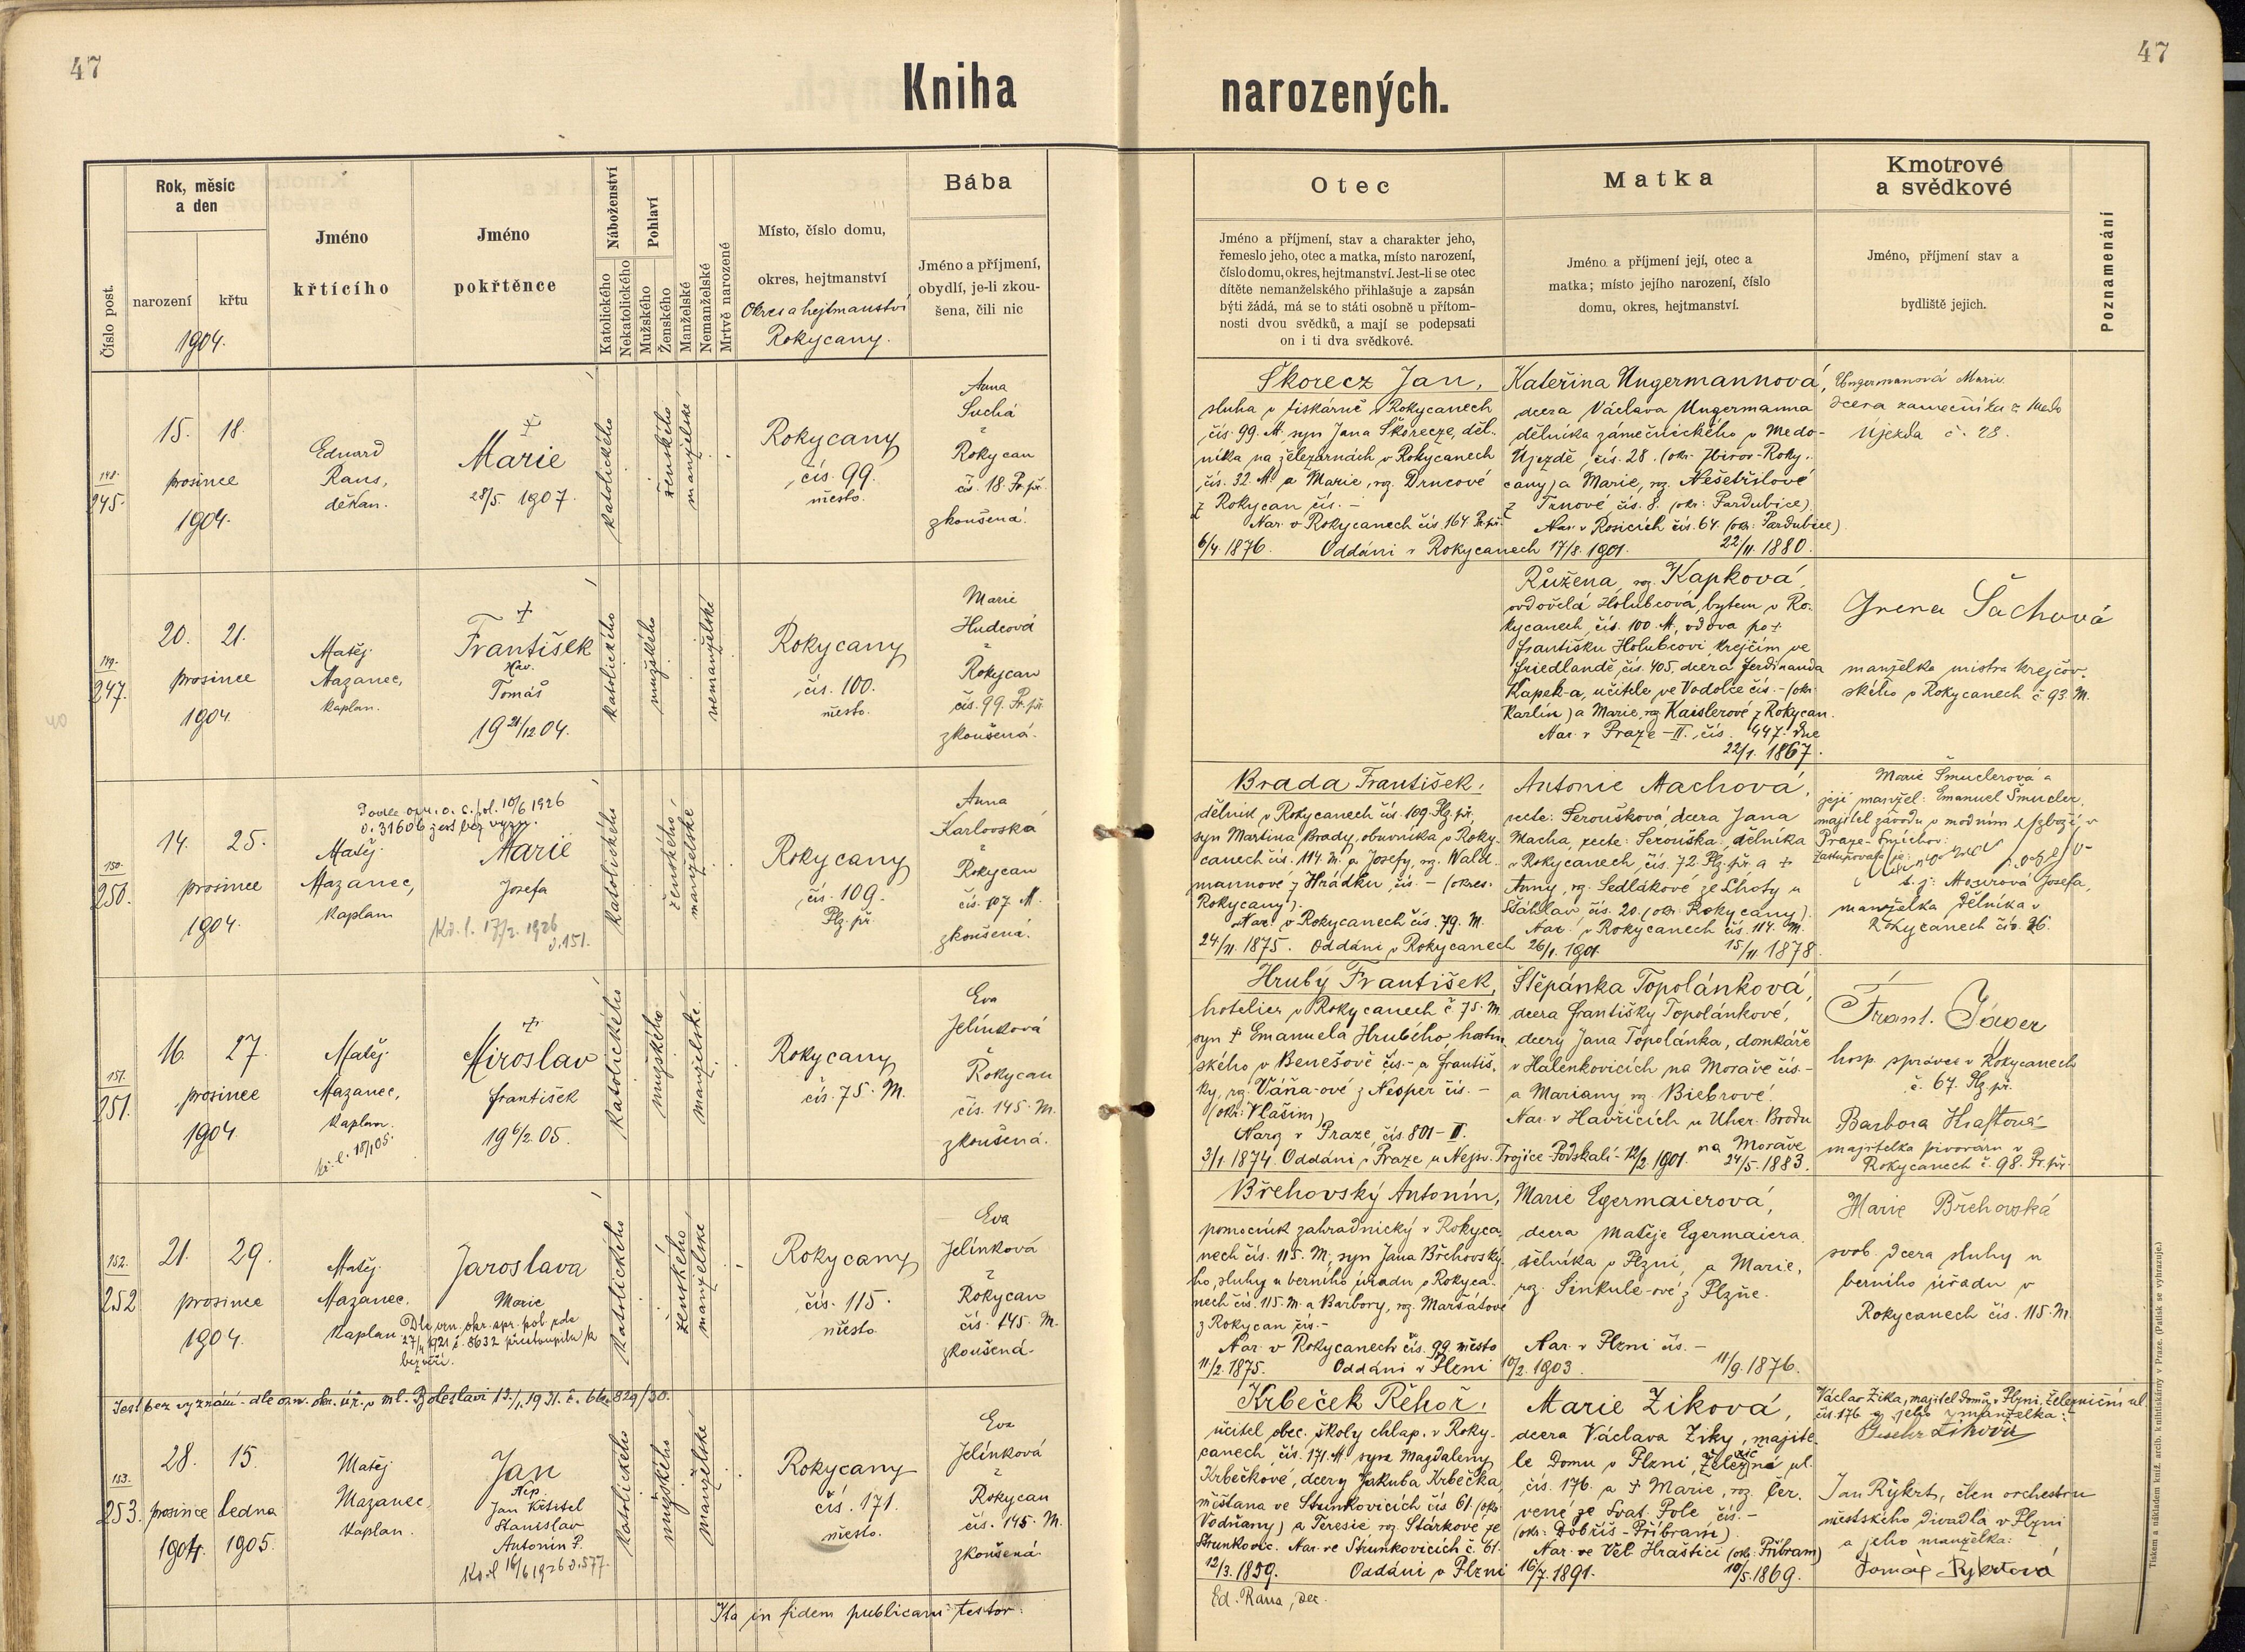 47
47
Kniha narozených.
Číslo post.
Rok, měsíc
a den
narození
křtu
1904.
Jméno
křtícího
Jméno
pokřtěnce
Náboženství
Katolického
Nekatolického
Pohlaví
Mužského
Ženského
Manželské
Nemanželské
Mrtvě narozené
Místo, číslo domu,
okres, hejtmanství
Okres a hejtmanství
Rokycany.
Bába
Jméno a příjmení,
obydlí, je-li zkou-
šena, čili nic
Otec
Jméno a příjmení, stav a charakter jeho,
řemeslo jeho, otec a matka, místo narození,
číslo domu, okres, hejtmanství. Jest-li se otec
dítěte nemanželského přihlašuje a zapsán
býti žádá, má se to státi osobně u přítom-
nosti dvou svědků, a mají se podepsati
on i ti dva svědkové.
Matka
Jméno a příjmení její, otec a
matka; místo jejího narození, číslo
domu, okres, hejtmanství.
Kmotrové
a svědkové
Jméno, příjmení stav a
bydliště jejich.
Poznamenání
148.
245.
15. 18.
prosince
1904.
Eduard
Rans,
děkan.
Marie
28/5 1907.
katolického
ženského
manželské
Rokycany
čís. 99.
město.
Anna
Suchá
z
Rokycan
čís. 18. Pr. př.
zkoušená.
Škorecz Jan,
sluha v tiskárně v Rokycanech
čís. 99. M., syn Jana Škorecze, děl-
níka na železárnách v Rokycanech
čís. 32. M. a Marie, roz. Drncové
z Rokycan čís. -
Nar. v Rokycanech čís. 164. Pr. př.
6/4. 1876. Oddáni v Rokycanech 17/8. 1901.
Kateřina Ungermannová,
dcera Václava Ungermanna
dělníka zámečnického v Medo-
Újezdě, čís. 28. (okr. Zbirov-Roky-
cany) a Marie, roz. Nešetřilové
z Trnové, čís. 8. (okr. Pardubice)
Nar. v Rosicích čís. 64. (okr. Pardubice)
22/11. 1880.
Ungermanová Marie.
dcera zámečníka z Medo
Újezda č. 28.
149.
247.
20. 21.
prosince
1904.
Matěj
Mazanec,
kaplan.
František
Xav.
Tomáš
19 21/12 04.
katolického
mužského
nemanželské
Rokycany
čís. 100.
město.
Marie
Hudcová
z
Rokycan
čís. 99. Pr. př.
zkoušená.
Růžena, roz. Kapková,
ovdovělá Holubcová, bytem v Ro-
kycanech, čís. 100. M., vdova po †
Františku Holubcovi, krejčím ve
Friedlandě, čís. 405, dcera Ferdinanda
Kapek-a, učitele ve Vodolce čís. - (okr.
Karlín) a Marie, roz. Kaislerové z Rokycan.
Nar. v Praze - II. čís. 447. dne
22/1. 1867.
Irena Šachová
manželka mistra krejčov-
ského v Rokycanech č. 93. M.
150.
250.
14. 25.
prosince
1904.
10/6 1926
Matěj
Mazanec,
kaplan
Marie
Josefa
Kř. l. 17/2. 1926
katolického
ženského
manželské
Rokycany
čís. 109.
Plz. př.
Anna
Karlovská
z
Rokycan
čís. 107 M.
zkoušená.
Brada František,
dělník v Rokycanech čís. 109. Plz. př.,
syn Martina Brady, obuvníka v Roky-
canech čís. 114. M. a Josefy, roz. Wald-
mannové z Hrádku, čís. - (okres:
Rokycany).
Nar. v Rokycanech čís. 79. M.
24/11. 1875. Oddáni v Rokycanech 26/1. 1901.
Antonie Machová,
recte: Peroušková, dcera Jana
Macha, recte: Peroušky, dělníka
v Rokycanech, čís. 72. Plz. př. a †
Anny, roz. Sedlákové ze Lhoty u
Šťáhlav, čís. 20. (okr. Rokycany).
Nar. v Rokycanech čís. 114. M.
15/11. 1878.
Marie Šmuclerová a
její manžel: Emanuel Šmucler,
majitel závodu v módním zboží v
Praze-Smíchov.
zastupovala je:
t. j.: Moserová Josefa,
manželka dělníka v
Rokycanech čís. 26.
151.
251.
16. 27.
prosince
1904
Matěj
Mazanec,
kaplan.
Miroslav
František
19 6/2. 05.
katolického
mužského
manželské
Rokycany
čís. 75. M.
Eva
Jelínková
z
Rokycan
čís. 145. M.
zkoušená.
Hrubý František,
hotelier v Rokycanech č. 75. M.
syn † Emanuela Hrubého, hostin-
ského v Benešově čís. - a Františ-
ky, roz. Váňa-ové z Nesper čís. -
(okr: Vlašim)
Naroz. v Praze, čís. 801-II.
3/1. 1874. Oddáni v Praze u Nejsv. Trojice - Podskalí - 12/2. 1901.
Štěpánka Topolánková,
dcera Františky Topolánkové,
dcery Jana Topolánka, domkáře
v Halenkovicích na Moravě čís. -
a Mariany, roz. Biebrové.
Nar. v Havřicích u Uher. Brodu
na Moravě
24/5. 1883.
Frant. Jäger
hosp. správce v Rokycanech
č. 67. Plz. př.
Barbora Kraftová
majitelka pivováru v
Rokycanech č. 98. Pr. př.
152.
252
21. 29.
prosince
1904.
Matěj
Mazanec,
kaplan
Jaroslava
Marie
č. 8632 přestoupila k
bezvěří.
katolického
ženského
manželské
Rokycany
čís. 115.
město
Eva
Jelínková
z
Rokycan
čís. 145. M.
zkoušená.
Břehovský Antonín,
pomocník zahradnický v Rokyca-
nech čís. 115. M., syn Jana Břehovské-
ho, sluhy u berního úřadu v Rokyca-
nech čís. 115. M. a Barbory, roz. Maršátové
z Rokycan čís. -
Nar. v Rokycanech čís. 99. město
11/2. 1875. Oddáni v Plzni 10/2. 1903.
Marie Egermaierová,
dcera Matěje Egermaiera,
dělníka v Plzni, a Marie,
roz. Sinkule-ové z Plzně.
Nar. v Plzni čís. -
11/9. 1876.
Marie Břehovská
svob. dcera sluhy u
berního úřadu v
Rokycanech čís. 115. M.
Jest bez vyznání - dle ozn. okr. úř. v Ml. Boleslavi
153.
253.
28. 15.
prosince ledna
1904. 1905.
Matěj
Mazanec,
kaplan.
Jan
Nep.
Jan Křtitel
Stanislav
Antonín P.
katolického
mužského
manželské
Rokycany
čís. 171.
město.
Eva
Jelínková
z
Rokycan
čís. 145. M.
zkoušená.
Krbeček Řehoř,
učitel obec. školy chlap. v Roky-
canech, čís. 171. M. syn Magdaleny
Krbečkové, dcery Jakuba Krbečka,
měšťana ve Strunkovicích čís. 61. (okr.
Vodňany) a Teresie, roz. Stárkové ze
Strunkovic. Nar. ve Strunkovicích č. 61.
12/3. 1859. Oddáni v Plzni 16/7. 1891.
Marie Ziková,
dcera Václava Ziky, majite-
le domu v Plzni, Železniční ul.
čís. 176. a † Marie, roz. Čer-
vené ze Svat. Pole, čís. -
(okr.: Dobříš-Příbram).
Nar. ve Vel. Hraštici (okr. Příbram)
10/5. 1869.
Václav Zika, majitel domu v Plzni, železniční ul.
čís. 176. a jeho manželka:
Jan Rýkrt, člen orchestru
městského divadla v Plzni
a jeho manželka:
Ita in fidem publicam testor:
Ed. Rans, dec.
Tiskem a nákladem kníž. arcib. knihtiskárny v Praze. (Patisk se vyhrazuje.)